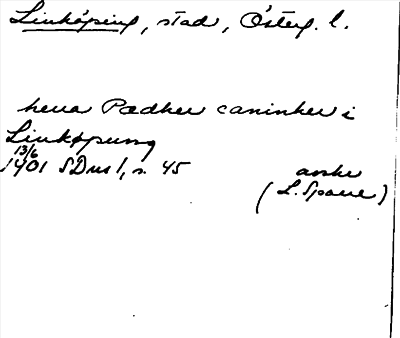 Linköping, stad, Österg. l.
herra Pædher caninker i
Linkøpung
13/6
1401 SDns 1, s. 45
avskr
(L. Spare)